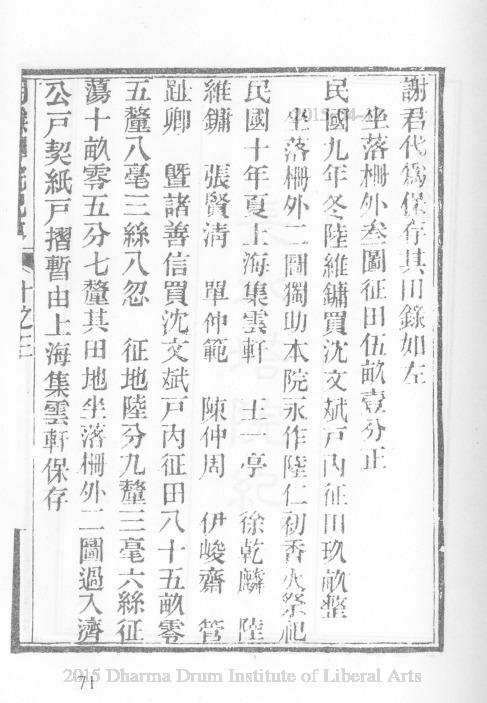 謝君代爲保存其田錄如左
坐落柵外叁圖征田伍畝壹分正
民國九年冬陸維鏞買沈文斌戶內征田玖畝整
坐落柵外二圖獨助本院永作陸仁初香火祭祀
民國十年夏上海集雲軒 王一亭 徐乾麟 陸
維鏞 張賢清 單仲範 陳仲周 伊峻齋 管
趾卿 暨諸善信買沈文斌戶內征田八十五畝零
五釐八毫三絲八忽 征地陸分九釐三毫六絲征
蕩十畝零五分七釐其田地坐落柵外二圖過入濟
公戶契紙戶摺暫由上海集雲軒保存
十之三
71
2015 Dharma Drum Institute of Liberal Arts